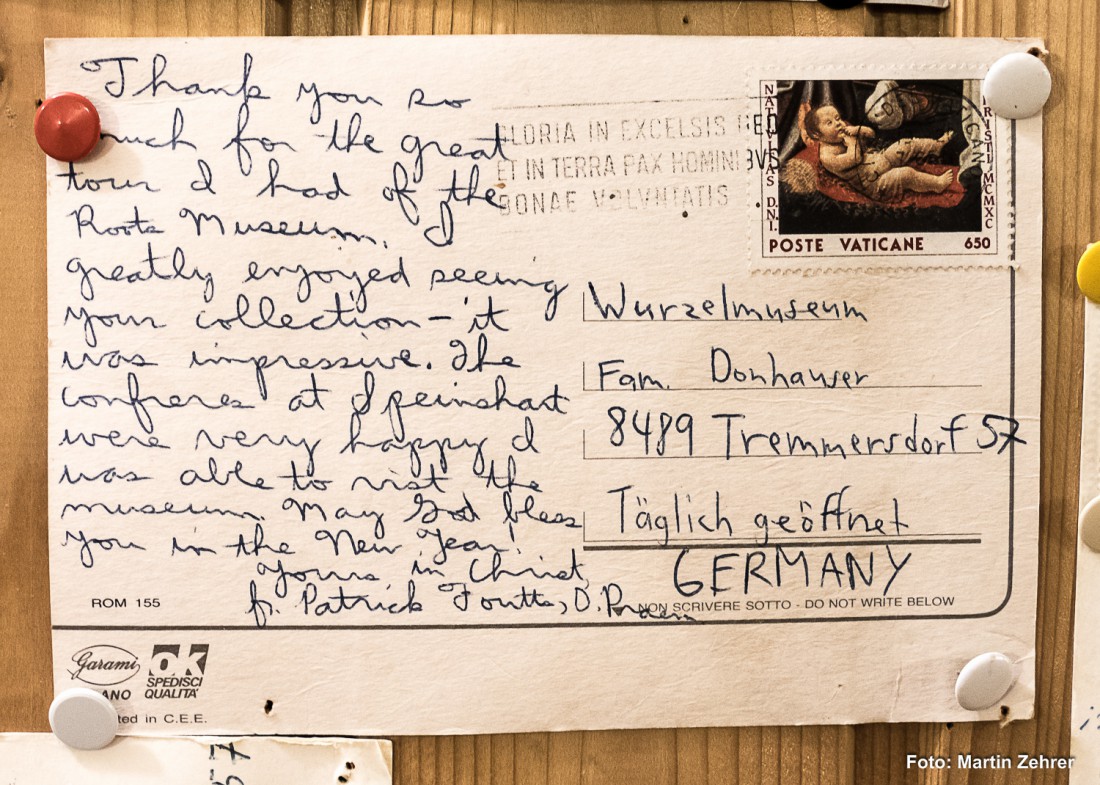 Thank you so
much for the great
tour I had of the
Roots Museum. I
greatly enjoyed seeing
your collection – it
was impressive. The
confreres at Speinshart
were very happy I
was able to visit the
museum. May God bless
you in the New Year!
Yours in Christ,
fr. Patrick Foutts, O. Praem
GLORIA IN EXCELSIS DEO
ET IN TERRA PAX HOMINIBVS
BONAE VOLVNTATIS
NATIVITAS D.N.I.
CHRISTI MCMXC
POSTE VATICANE 650
Wurzelmuseum
Fam. Donhauser
8489 Tremmersdorf 57
Täglich geöffnet
GERMANY
ROM 155
NON SCRIVERE SOTTO - DO NOT WRITE BELOW
Garami
OK
SPEDISCI
QUALITA'
ted in C.E.E.
Foto: Martin Zehrer